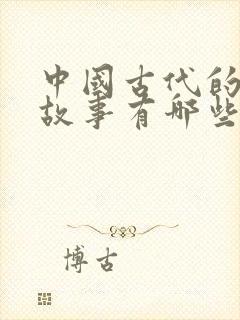 中國古代的
故事有哪些
博古